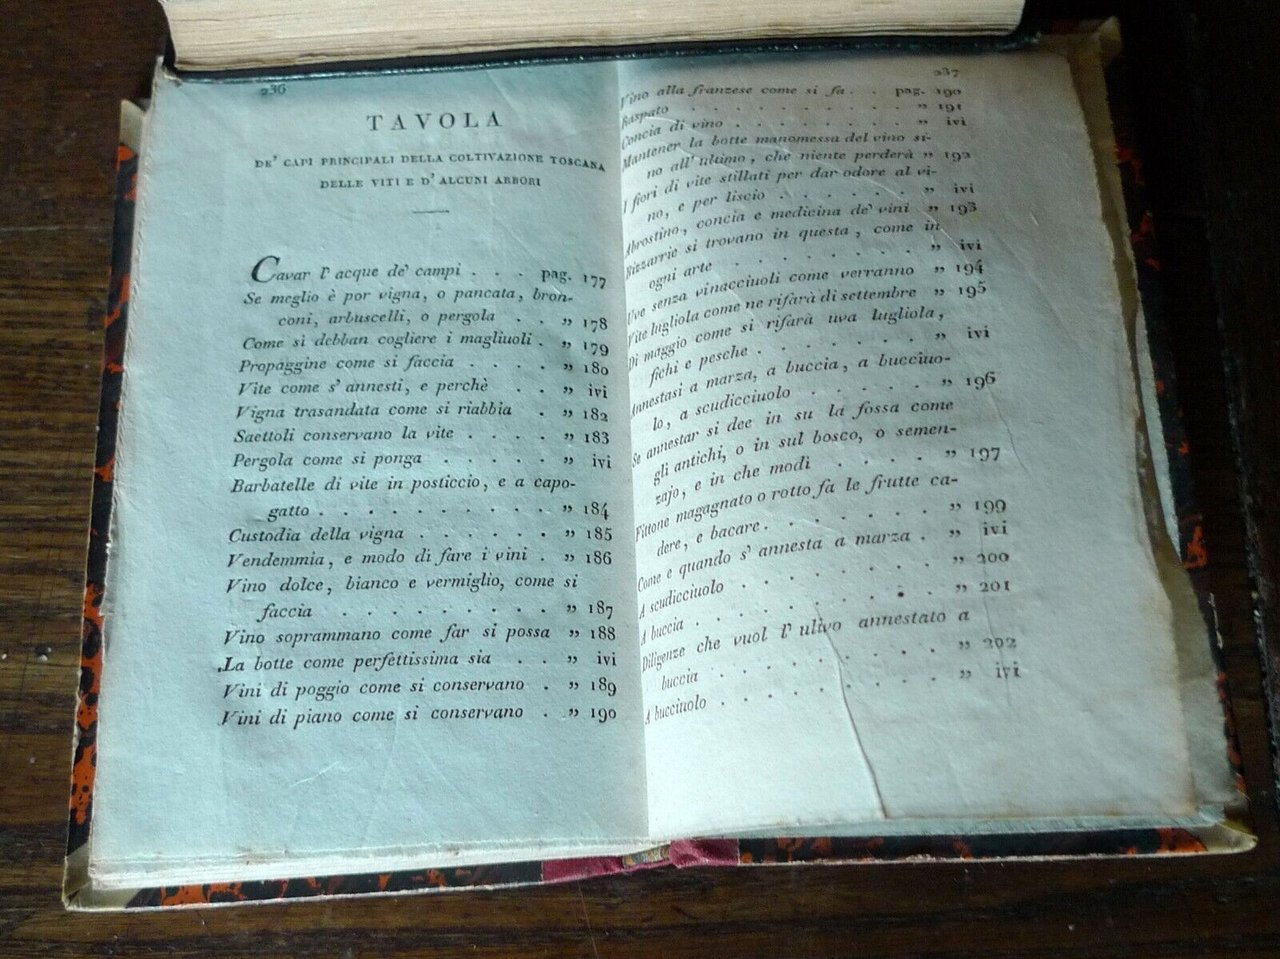 236
TAVOLA
DE' CAPI PRINCIPALI DELLA COLTIVAZIONE TOSCANA
DELLE VITI E D'ALCUNI ARBORI
Cavar l'acque de' campi . . . pag. 177
Se meglio è por vigna, o pancata, bron-
coni, arbuscelli, o pergola . . „ 178
Come si debban cogliere i magliuoli . „ 179
Propaggine come si faccia . . . . „ 180
Vite come s'annesti, e perchè . . „ ivi
Vigna trasandata come si riabbia . „ 182
Saettoli conservano la vite . . . . „ 183
Pergola come si ponga . . . . . „ ivi
Barbatelle di vite in posticcio, e a capo-
gatto . . . . . . . . . . „ 184
Custodia della vigna . . . . . . „ 185
Vendemmia, e modo di fare i vini . „ 186
Vino dolce, bianco e vermiglio, come si
faccia . . . . . . . . . „ 187
Vino soprammano come far si possa „ 188
La botte come perfettissima sia . . „ ivi
Vini di poggio come si conservano . „ 189
Vini di piano come si conservano . „ 190
237
Vino alla franzese come si fa . . pag. 190
Raspato . . . . . . . . . . „ 191
Concia di vino . . . . . . . . „ ivi
Mantener la botte manomessa del vino si-
no all'ultimo, che niente perderà „ 192
I fiori di vite stillati per dar odore al vi-
no, e per liscio . . . . . . „ ivi
Abrostino, concia e medicina de' vini „ 193
Bizzarrie si trovano in questa, come in
ogni arte . . . . . . . . „ ivi
Uve senza vinacciuoli come verranno „ 194
Vite lugliola come ne rifarà di settembre „ 195
Di maggio come si rifarà uva lugliola,
fichi e pesche . . . . . . . „ ivi
Annestasi a marza, a buccia, a bucciuo-
lo, a scudicciuolo . . . . . „ 196
Se annestar si dee in su la fossa come
gli antichi, o in sul bosco, o semen-
zajo, e in che modi . . . . „ 197
Fittone magagnato o rotto fa le frutte ca-
dere, e bacare . . . . . . . „ 199
Come e quando s'annesta a marza . „ ivi
A scudicciuolo . . . . . . . . „ 200
A buccia . . . . . . . . . . „ 201
Diligenze che vuol l'ulivo annestato a
buccia . . . . . . . . . „ 202
A bucciuolo . . . . . . . . . „ ivi